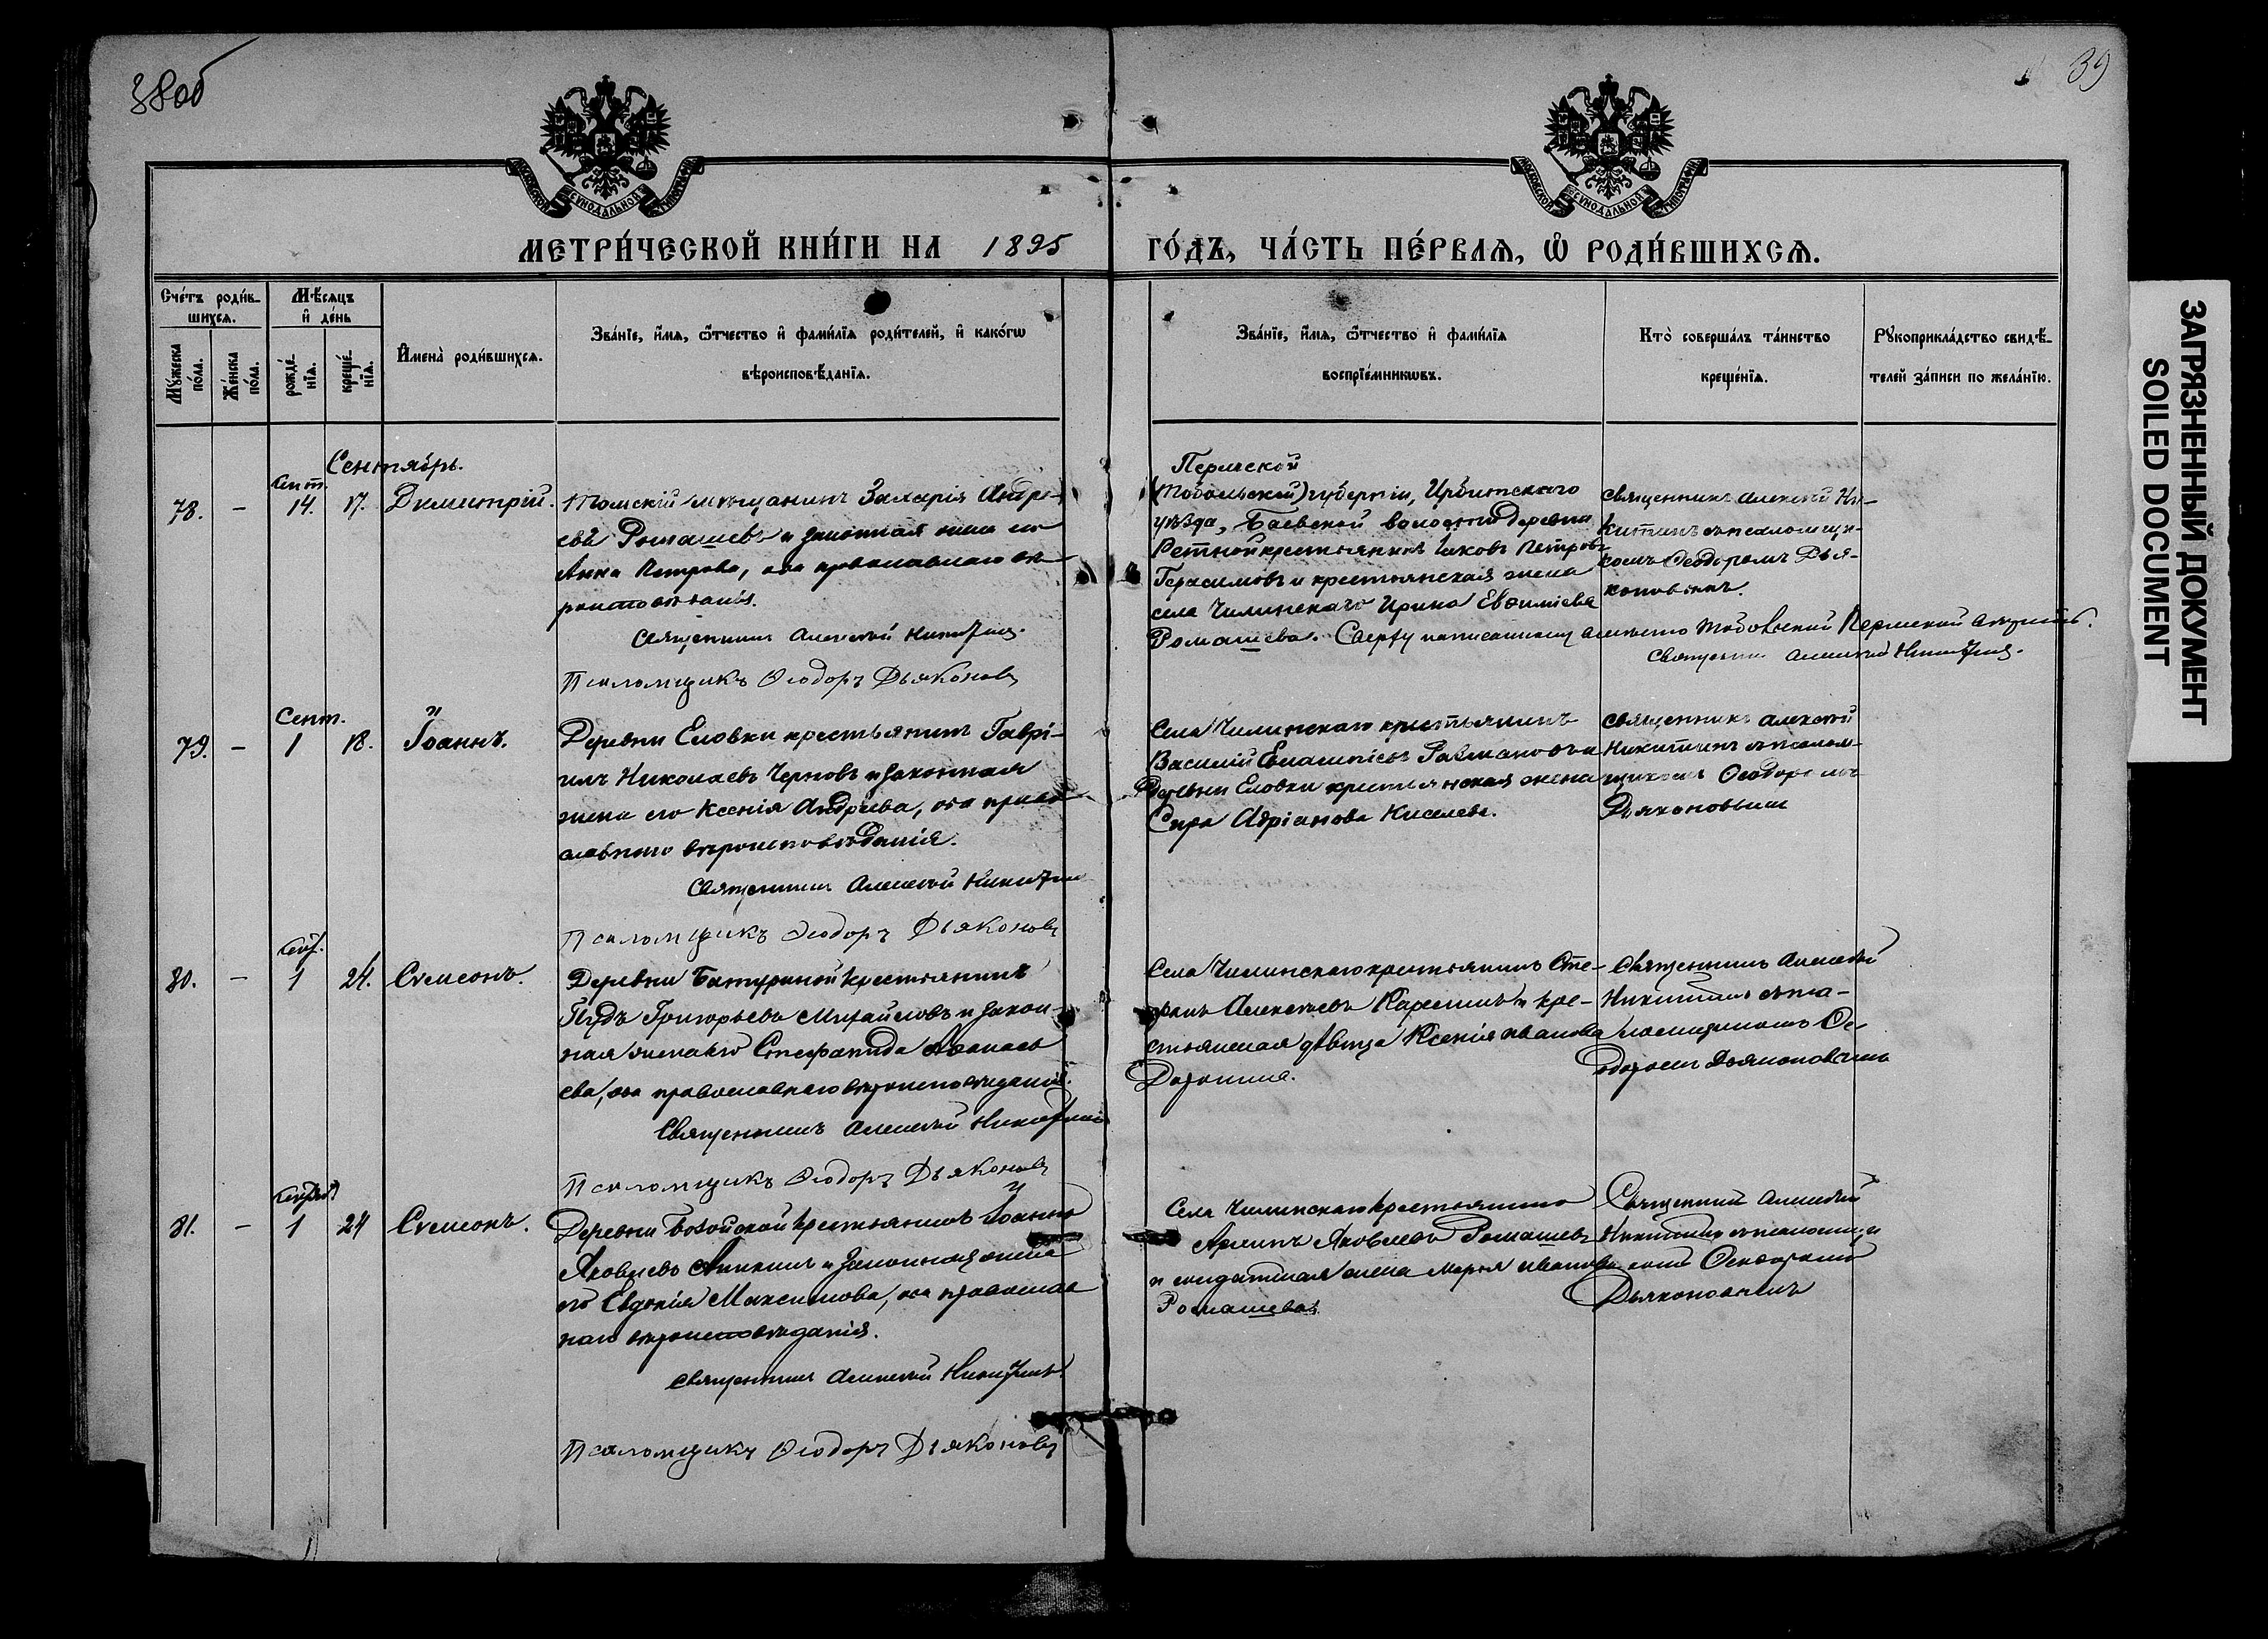 38об
39
МОСКОВСКОЙ СѴНОДАЛЬНОЙ ТИПОГРАФІИ
МОСКОВСКОЙ СѴНОДАЛЬНОЙ ТИПОГРАФІИ
МЕТРИ́ЧЕСКОЙ КНИ́ГИ НА 1895 ГО́ДЪ, ЧА́СТЬ ПЕ́РВАѦ, Ѡ҆ РОДИ́ВШИХСѦ.
Сче́тъ роди́в-
шихсѧ.
Мѣ́сѧцъ
и҆ де́нь
Мꙋ́жеска
по́ла.
Же́нска
по́ла.
рожде́-
нїѧ.
креще́-
нїѧ.
И҆мена̀ роди́вшихсѧ.
Зва́нїе, и҆́мѧ, ѻ҆́тчество и҆ фами́лїѧ роди́телей, и҆ како́гѡ
вѣроисповѣ́данїѧ.
Зва́нїе, и҆́мѧ, ѻ҆́тчество и҆ фами́лїѧ
воспрїе́мникѡвъ.
Кто̀ соверша́лъ та́инство
креще́нїѧ.
Рꙋкоприкла́дство свидѣ́-
телей за́писи по жела́нїю.
Сентябрь.
Сент.
78. – 14. 17. Димитрій.
Томскій мѣщанинъ Захарія Андре-
евъ Ромашевъ и законная жена его
Анна Петрова, оба православнаго вѣ-
роисповѣданія.
Священникъ Алексѣй Никитинъ.
Псаломщикъ Ѳеодоръ Дьяконовъ
Пермской
(Тобольской) губерніи, Ирбитскаго
уѣзда, Баевской волости деревни
Ретной крестьянинъ Іаковъ Петровъ
Герасимовъ и крестьянская жена
села Чилинскаго Ирина Евѳиміева
Ромашева. Сверху написанному вмѣсто Тобольской Пермской
Священникъ Алексѣй Никитинъ.
Священникъ Алексѣй Ни-
китинъ съ псаломщи-
комъ Ѳеодоромъ Дья-
коновымъ.
Сент.
79. – 1 18. Іоаннъ.
Деревни Еловки крестьянинъ Гаврі-
илъ Николаевъ Черновъ и законная
жена его Ксенія Андреева, оба право-
славнаго вѣроисповѣданія.
Священникъ Алексѣй Никитинъ
Псаломщикъ Ѳеодоръ Дьяконовъ
Села Чилинскаго крестьянинъ
Василій и
Деревни Еловки крестьянская жена
Адріанова Киселева.
Священникъ Алексѣй
Никитинъ съ псалом-
щикомъ Ѳеодоромъ
Дьяконовымъ
Сент.
80. – 1 24. Сѵмеонъ.
Деревни Батуриной крестьянинъ
Пудъ Григорьевъ Михайловъ и закон-
ная жена его Стефанида Аѳанась
ева, оба православнаго вѣроисповѣданія.
Священникъ Алексѣй Никитинъ
Псаломщикъ Ѳеодоръ Дьяконовъ
Села Чилинскаго крестьянинъ Сте-
фанъ Алексѣевъ и кре-
стьянская дѣвица Ксенія Иванова
Священникъ Алексѣй
Никитинъ съ пса-
ломщикомъ Ѳе-
одоромъ Дьяконовымъ
81. – 1 24 Сѵмеонъ.
Деревни крестьянинъ Іоаннъ
Яковлевъ Аникинъ и законная жена
его Евдокія Максимова, оба православ
наго вѣроисповѣданія.
Священникъ Алексѣй Никитинъ.
Псаломщикъ Ѳеодоръ Дьяконовъ
Села Чилинскаго крестьянинъ
Яковлевъ Ромашевъ
и солдатская жена Марья Иванова
Ромашева
Священникъ Алексѣй
Никитинъ съ псаломщи
комъ Ѳеодоромъ
Дьяконовымъ
ЗАГРЯЗНЕННЫЙ ДОКУМЕНТ
SOILED DOCUMENT